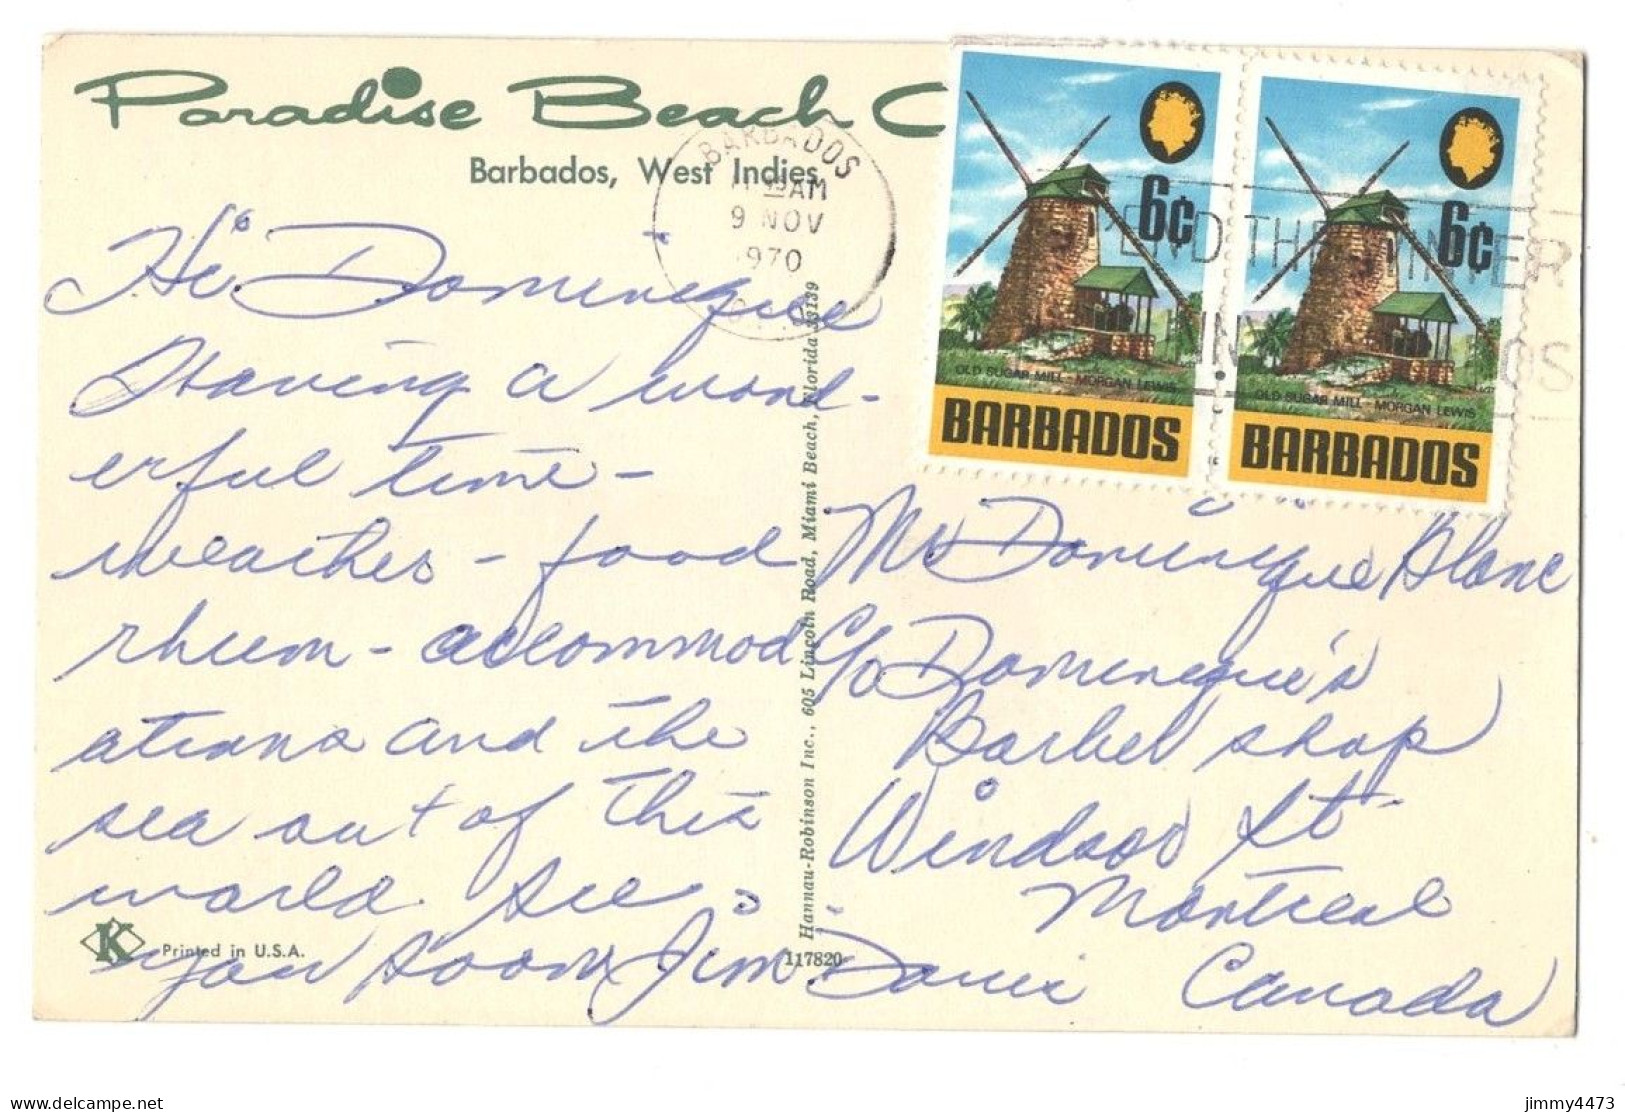 Paradise Beach C
Barbados, West Indies.
BARBADOS
AM
9 NOV
1970
6¢
OLD SUGAR MILL - MORGAN LEWIS
BARBADOS
6¢
OLD SUGAR MILL - MORGAN LEWIS
BARBADOS
END THE WINTER
IN
OS
Hi Dominique
Having a wond-
erful time -
weather - food
rhum - accommod
ations and the
sea out of this
world. See
you soon Jim Davis
Mr Dominique Blanc
C/o Dominique's
Barber shop
Windsor St
Montreal
Canada
Hannau-Robinson Inc., 605 Lincoln Road, Miami Beach, Florida 33139
K
Printed in U.S.A.
117820
delcampe.net
jimmy4473